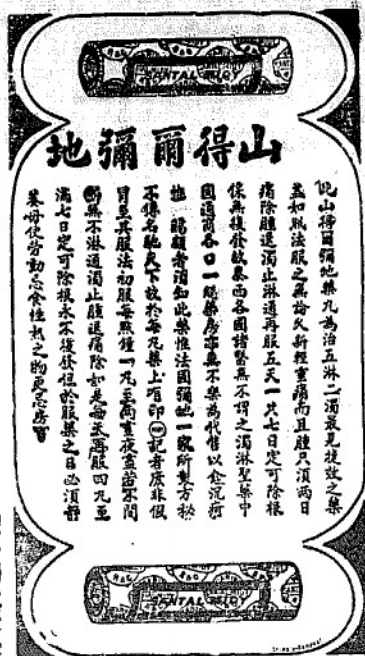 SANTAL MIDY
山得爾彌地
此山得爾彌地藥丸為治五淋二濁最見捷效之藥
如照法服之無論久新輕重痛而且腫只須兩日
痛除腫退濁止淋通再服五天一共七日定可除根
保無後發歐西各國諸醫無不謂之濁淋聖藥中
國通商各口一經藥房亦無不樂為代售以愈沉疴
也 賜顧者須知此藥惟法國彌地一家所製方秘
不傳名馳天下故於每丸藥上皆印 記者庶非假
冒至其服法初服每點鐘一丸至 晝夜 不間
斷無不淋通濁止腫退痛除如是每天再服四丸至
滿七日定可除根永不復發但於服藥之日必須靜
養毋使勞動忌食性熱之物更忌房
SANTAL MIDY